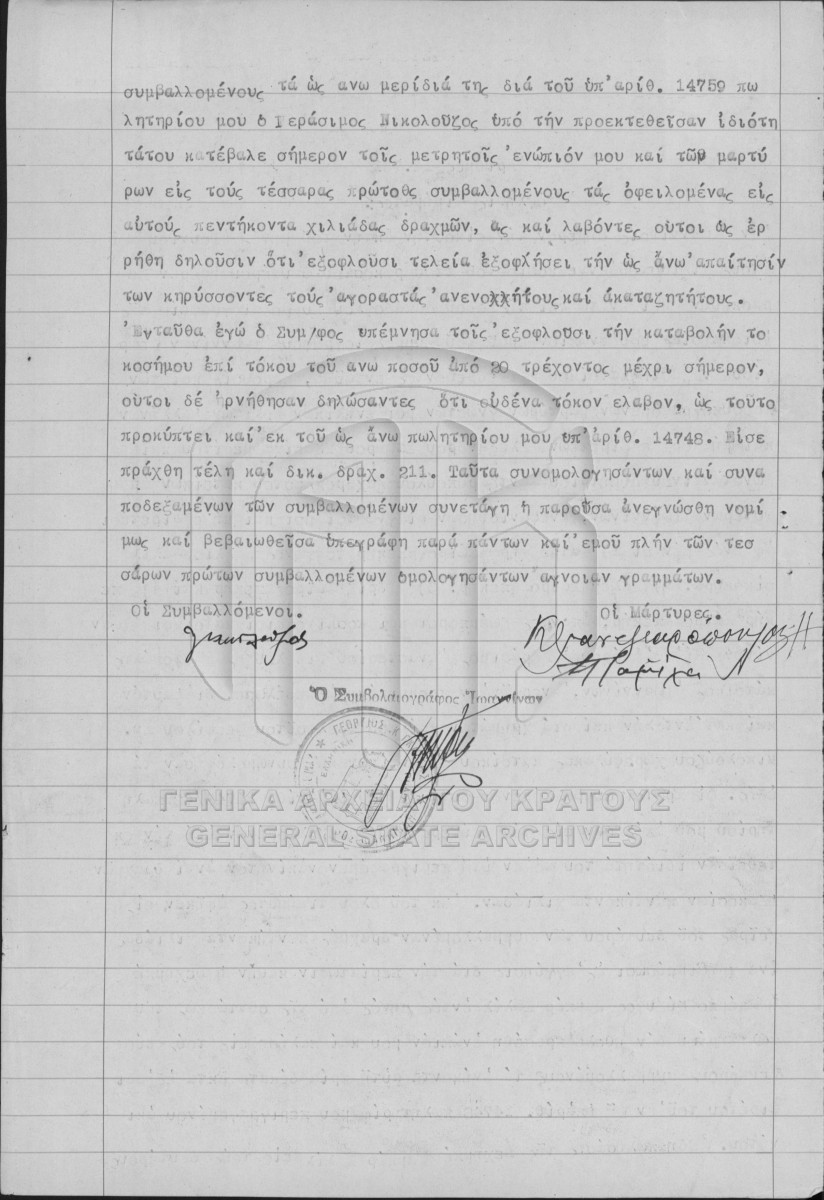 συμβαλλομένους τά ὡς ανω μερίδιά της διά τοῦ ὑπ'αρίθ. 14759 πω
λητηρίου μου ὁ Γεράσιμος Νικολοῦζος ὑπό τήν προεκτεθεῖσαν ἰδιότη
τάτου κατέβαλε σήμερον τοῖς μετρητοῖς 'ενώπιόν μου καί τῶν μαρτύ
ρων εἰς τούς τέσσαρας πρώτοθς συμβαλλομένους τάς ὀφειλομένας εἰς
αὐτούς πεντήκοντα χιλιάδας δραχμῶν, ας καί λαβόντες οὗτοι ὡς ἐρ
ρήθη δηλοῦσιν ὅτι 'εξοφλοῦσι τελεία ἐξοφλήσει τήν ὡς ἄνω 'απαίτησίν
των κηρύσσοντες τούς 'αγοραστάς 'ανενοχλήτους καί ἀκαταζητήτους.
'Ενταῦθα ἐγώ ὁ Συμ/φος υπέμνησα τοῖς 'εξοφλουσι τήν καταβολήν το
κοσήμου ἐπί τόκου τοῦ ανω ποσοῦ ἀπό 20 τρέχοντος μέχρι σήμερον,
οὗτοι δέ ἠρνήθησαν δηλώσαντες ὅτι οὐδένα τόκον ελαβον, ὡς τοῦτο
προκύπτει καί 'εκ τοῦ ὡς ἄνω πωλητηρίου μου υπ'ἀρίθ. 14748. Εἰσε
πράχθη τέλη καί δικ. δραχ. 211. Ταῦτα συνομολογησάντων καί συνα
ποδεξαμένων τῶν συμβαλλομένων συνετάγη ἡ παροῦσα ἀνεγνώσθη νομί
μως καί βεβαιωθεῖσα ὑπεγράφη παρά πάντων καί 'εμοῦ πλήν τῶν τεσ
σάρων πρώτων συμβαλλομένων ὁμολογησάντων ἄγνοιαν γραμμάτων.
Οἱ Συμβαλλόμενοι. Οἱ Μάρτυρες.
Ὁ Συμβολαιογράφος Ἰωαννίνων
ΓΕΩΡΓΙΟΣ
ΓΕΝΙΚΑ ΑΡΧΕΙΑ ΤΟΥ ΚΡΑΤΟΥΣ
GENERAL STATE ARCHIVES